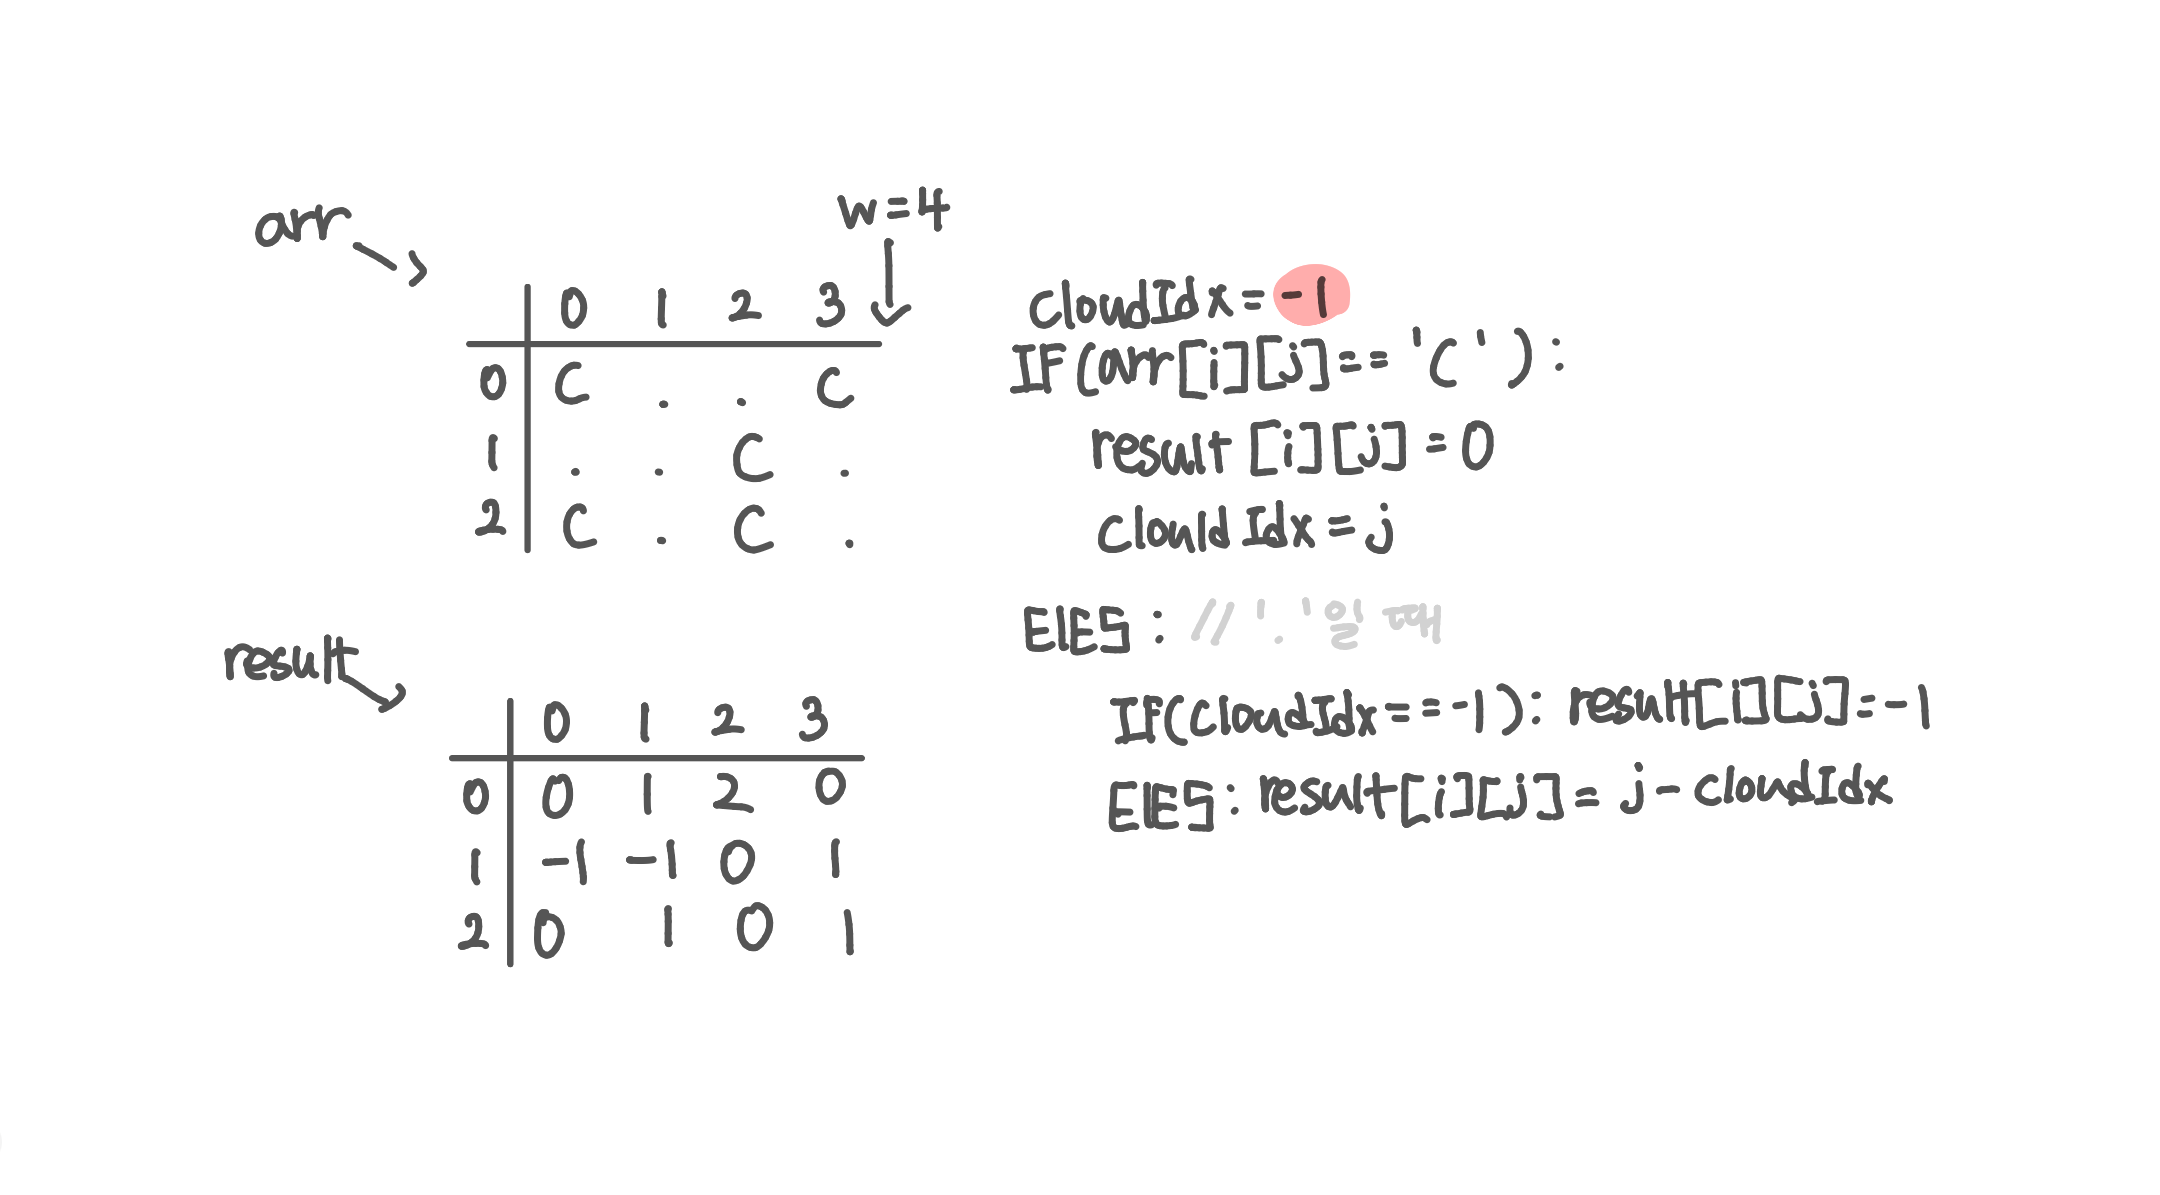 arr
w=4
0 1 2 3
0 C . . C
1 . . C .
2 C . C .
result
0 1 2 3
0 0 1 2 0
1 -1 -1 0 1
2 0 1 0 1
cloudIdx = -1
IF(arr[i][j]== 'C'):
result[i][j] = 0
clouldIdx = j
ElES : // '.'일 때
IF(cloudIdx==-1): result[i][j]=-1
ElES: result[i][j] = j-cloudIdx